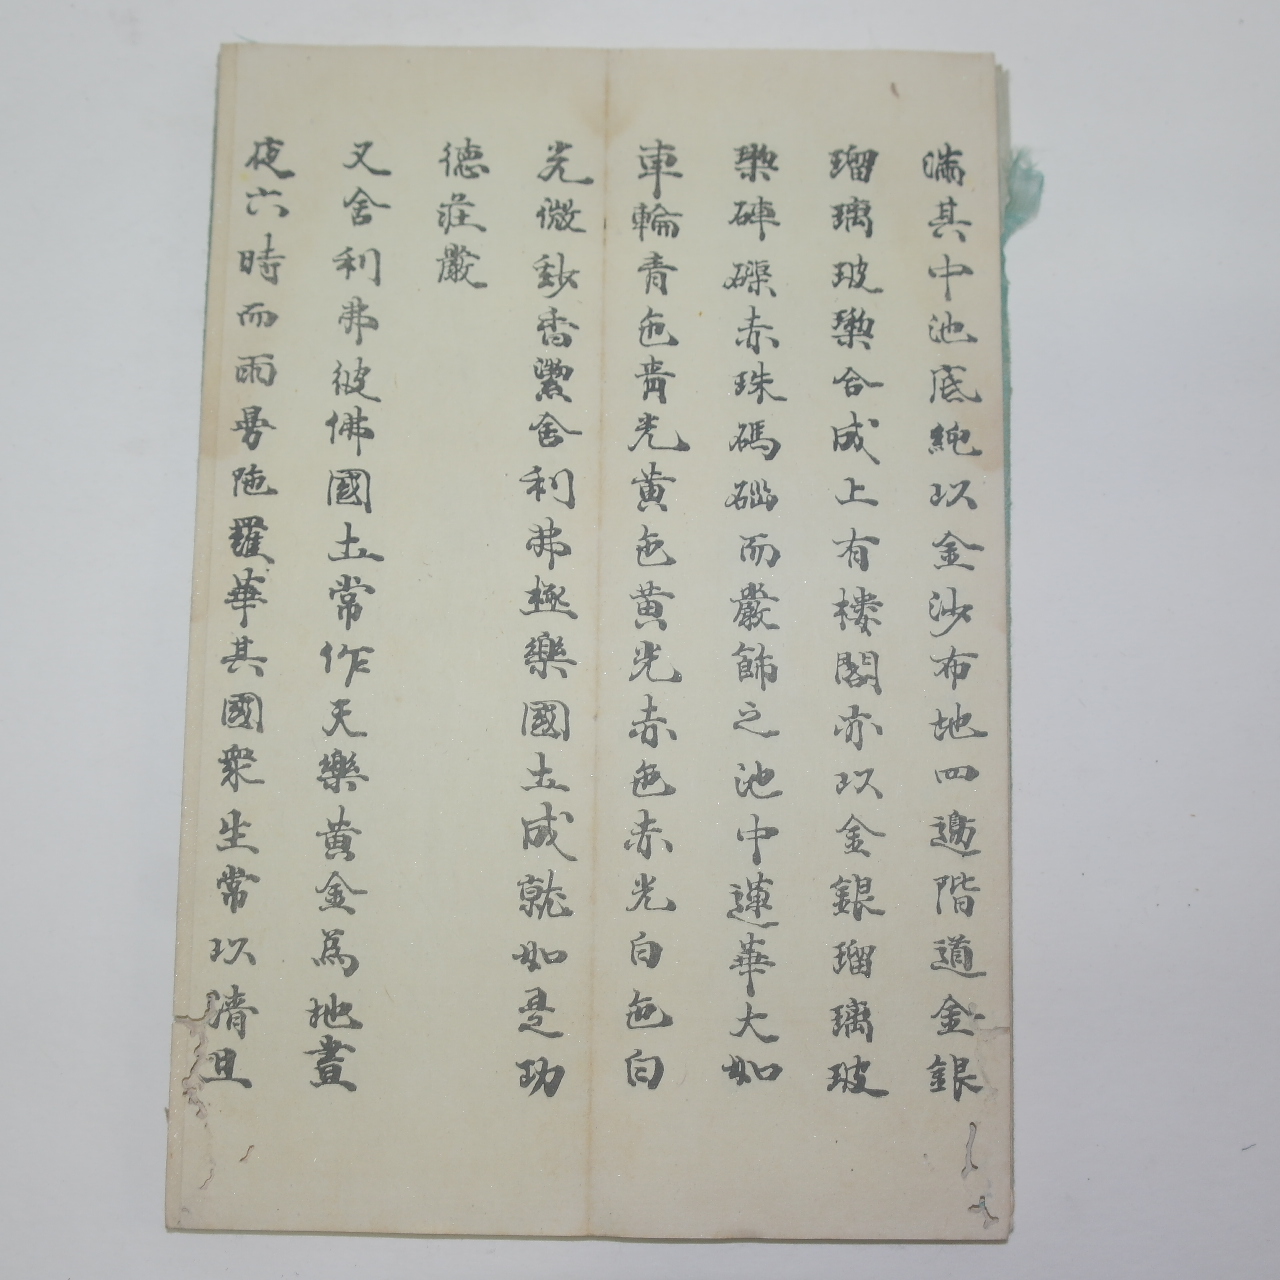 滿其中池底純以金沙布地四邊階道金銀
瑠璃玻瓈合成上有樓閣亦以金銀瑠璃玻
瓈硨磲赤珠碼碯而嚴飾之池中蓮華大如
車輪青色青光黃色黃光赤色赤光白色白
光微鈔香潔舍利弗極樂國土成就如是功
德莊嚴
又舍利弗彼佛國土常作天樂黃金為地晝
夜六時而雨曼陁羅華其國衆生常以清旦